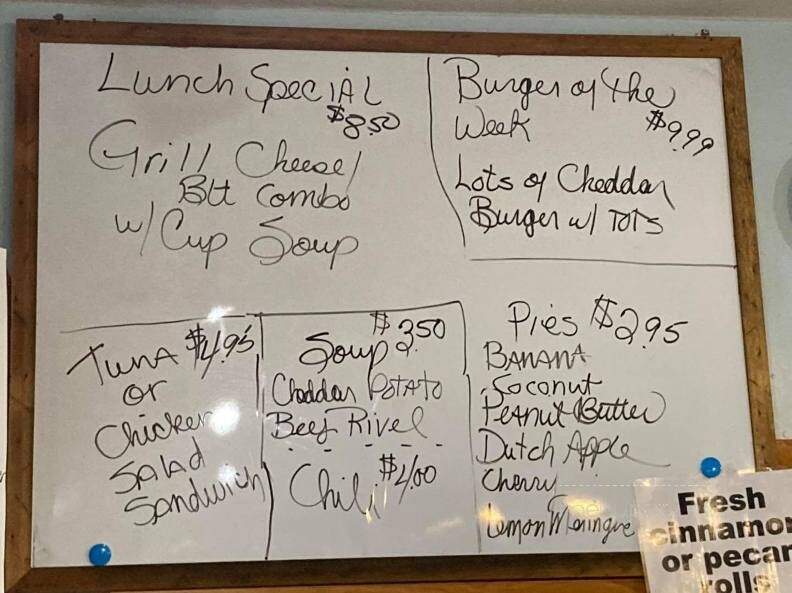 Lunch Special
$8.50
Grill Cheese/
Blt Combo
w/ Cup Soup
Burger of the
Week $9.99
Lots of Cheddar
Burger w/ TOTS
Tuna $4.95
or
Chicken
Salad
Sandwich
Soup $3.50
Cheddar Potato
Beef Rivel
Chili $4.00
Pies $2.95
Banana
Coconut
Peanut Butter
Dutch Apple
Cherry
Lemon Meringue
Fresh
cinnamo
or pecan
rolls